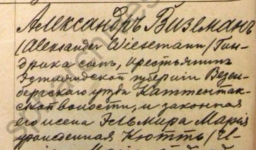 Александръ Виземанъ
(Aleksander Wiesemann) Гин-
дрика сынъ, крестьянинъ
Эстляндской губерніи Везен-
бергскаго уѣзда Каттентак-
ской волости, и законная
его жена Эльмира Марія
урожденная Кютть,